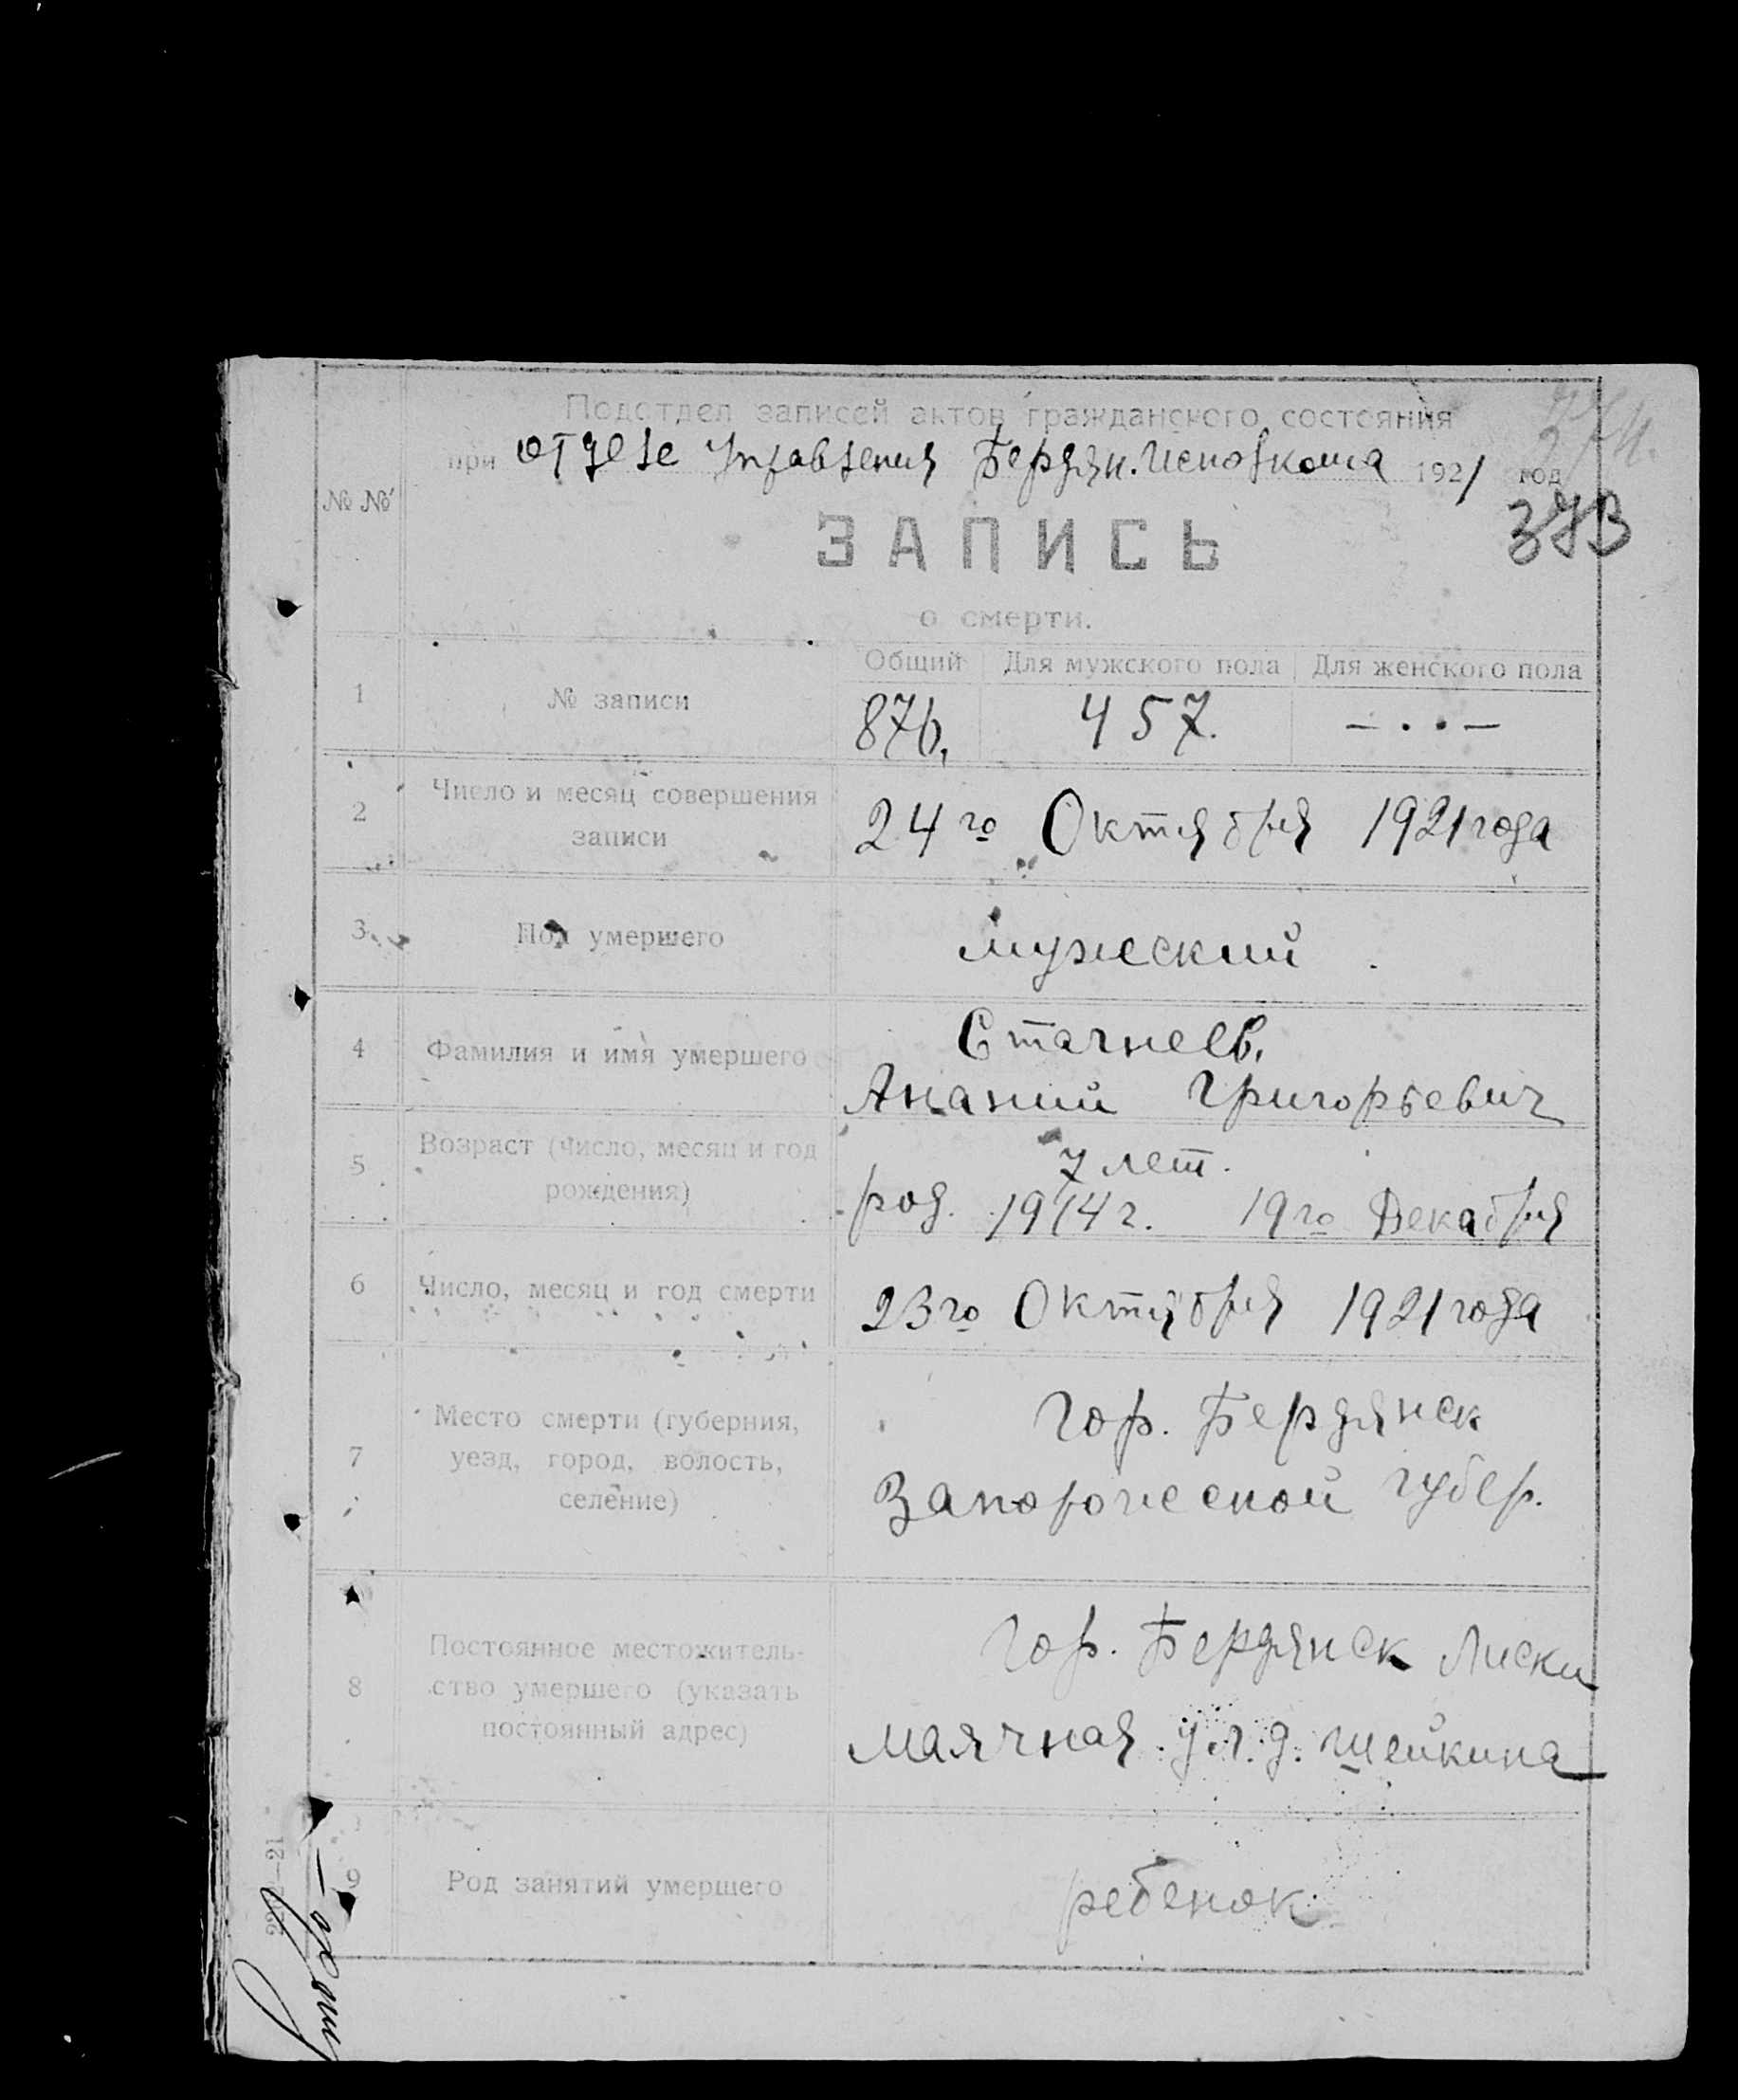 Подотдел записей актов гражданского состояния
при отделе Управления Бердян. Исполкома 1921 год
373
№ №
ЗАПИСЬ
о смерти.
Общий Для мужского пола Для женского пола
1 № записи 876. 457. — . . —
2 Число и месяц совершения
записи
24го Октября 1921 года
3 Пол умершего мужеский.
4 Фамилия и имя умершего
Стачнеев.
Ананий Григорьевич
5 Возраст (число, месяц и год
рождения)
7 лет.
род. 1914 г. 19го Декабря
6 Число, месяц и год смерти 23го Октября 1921 года
7 Место смерти (губерния,
уезд, город, волость,
селение)
Гор. Бердянск
Запорожской губер.
8 Постоянное местожитель-
ство умершего (указать
постоянный адрес)
Гор. Бердянск Лиски
Маячная ул. д. Шейкина
9 Род занятий умершего ребенок